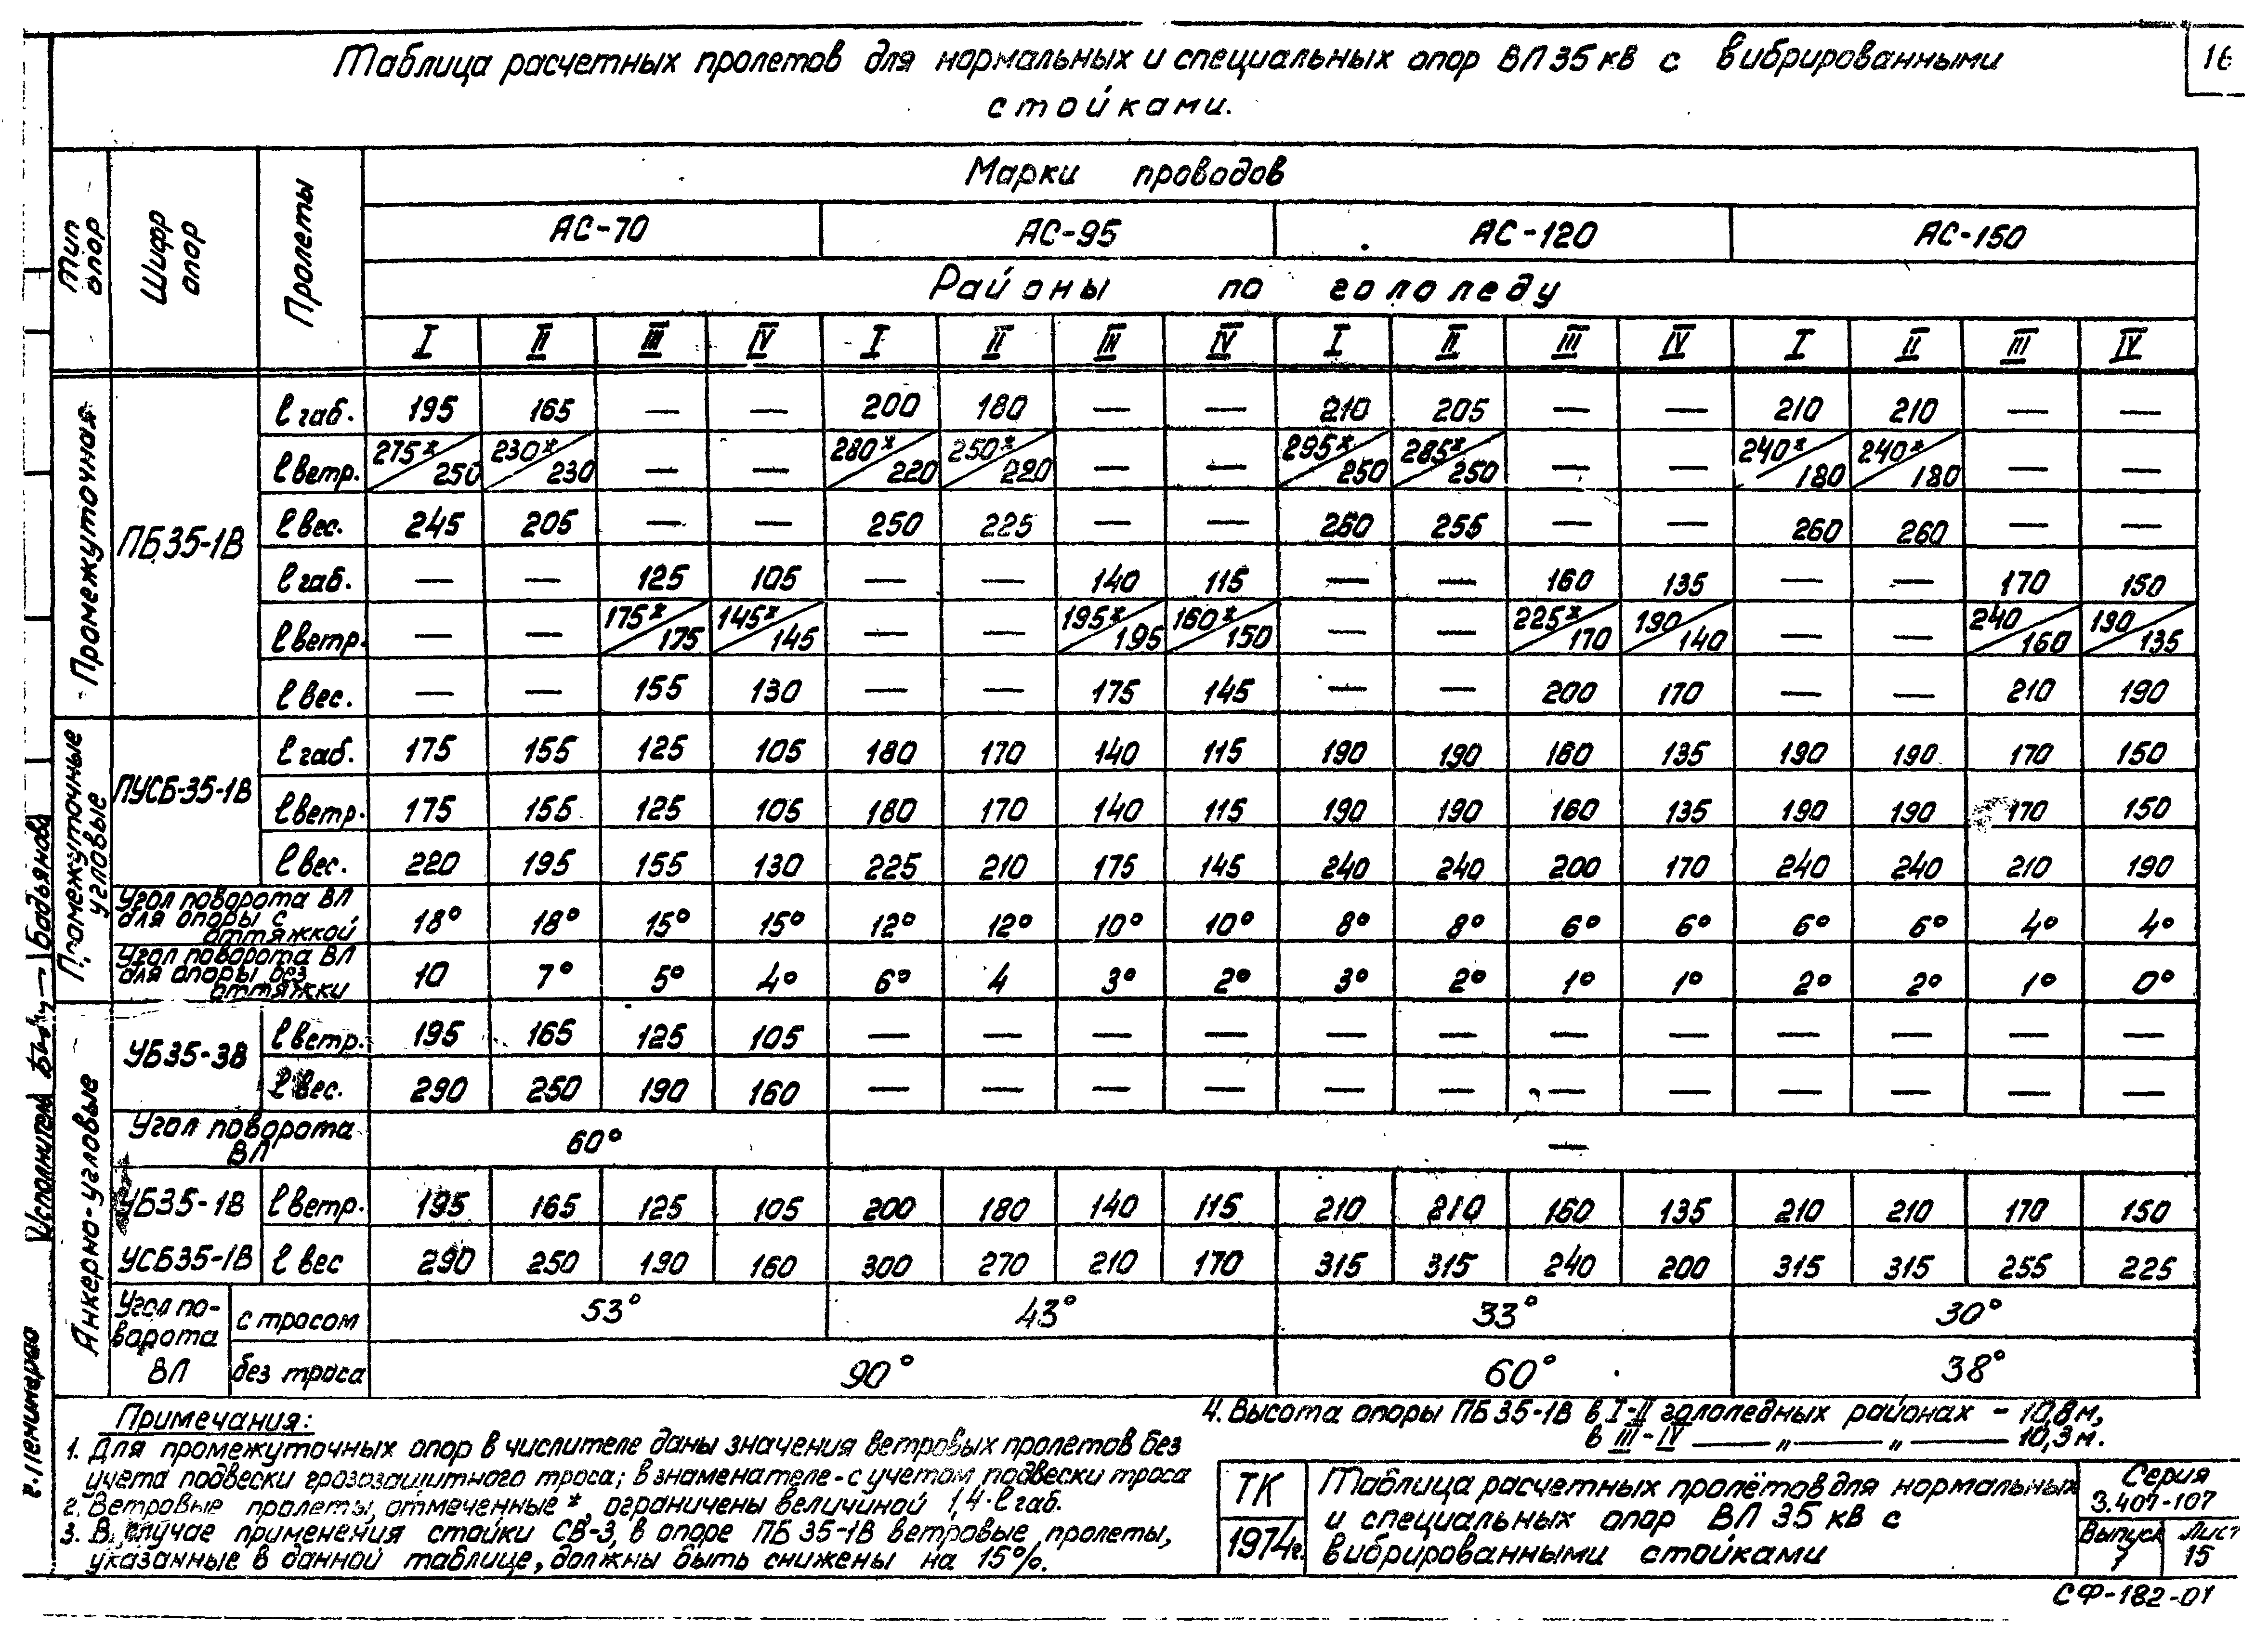 Таблица расчетных пролетов для нормальных и специальных опор ВЛ 35 кв с вибрированными
стойками.
16
Тип опор
Шифр опор
Пролеты
Марки проводов
АС-70 АС-95 АС-120 АС-150
Районы по гололеду
I II III IV I II III IV I II III IV I II III IV
Промежуточная
ПБ35-1В
l габ. 195 165 — — 200 180 — — 210 205 — — 210 210 — —
l ветр. 275*/250 230*/230 — — 280*/220 250*/220 — — 295*/250 285*/250 — — 240*/180 240*/180 — —
l вес. 245 205 — — 250 225 — — 260 255 — — 260 260 — —
l габ. — — 125 105 — — 140 115 — — 160 135 — — 170 150
l ветр. — — 175*/175 145*/145 — — 195*/195 160*/150 — — 225*/170 190/140 — — 240/160 190/135
l вес. — — 155 130 — — 175 145 — — 200 170 — — 210 190
Промежуточные угловые
ПУСБ-35-1В
l габ. 175 155 125 105 180 170 140 115 190 190 160 135 190 190 170 150
l ветр. 175 155 125 105 180 170 140 115 190 190 160 135 190 190 170 150
l вес. 220 195 155 130 225 210 175 145 240 240 200 170 240 240 210 190
Угол поворота ВЛ
для опоры с
оттяжкой
18° 18° 15° 15° 12° 12° 10° 10° 8° 8° 6° 6° 6° 6° 4° 4°
Угол поворота ВЛ
для опоры без
оттяжки
10 7° 5° 4° 6° 4 3° 2° 3° 2° 1° 1° 2° 2° 1° 0°
Анкерно-угловые
УБ35-3В
l ветр. 195 165 125 105 — — — — — — — — — — — —
l вес. 290 250 190 160 — — — — — — — — — — — —
Угол поворота
ВЛ
60° —
УБ35-1В l ветр. 195 165 125 105 200 180 140 115 210 210 160 135 210 210 170 150
УСБ35-1В l вес 290 250 190 160 300 270 210 170 315 315 240 200 315 315 255 225
Угол по-
ворота
ВЛ
с тросом 53° 43° 33° 30°
без троса 90° 60° 38°
Примечания:
1. Для промежуточных опор в числителе даны значения ветровых пролетов без
учета подвески грозозащитного троса; в знаменателе - с учетом подвески троса
2. Ветровые пролеты, отмеченные *, ограничены величиной 1,4·l габ.
3. В случае применения стойки СВ-3, в опоре ПБ 35-1В ветровые пролеты,
указанные в данной таблице, должны быть снижены на 15%.
4. Высота опоры ПБ 35-1В в I-II гололедных районах – 10,8 м,
в III-IV — „ — „ — 10,3 м.
ТК
1974г.
Таблица расчетных пролётов для нормальных
и специальных опор ВЛ 35 кв с
вибрированными стойками
Серия
3.407-107
Выпуск
7
Лист
15
СФ-182-01
г. Ленинград
Исполнитель